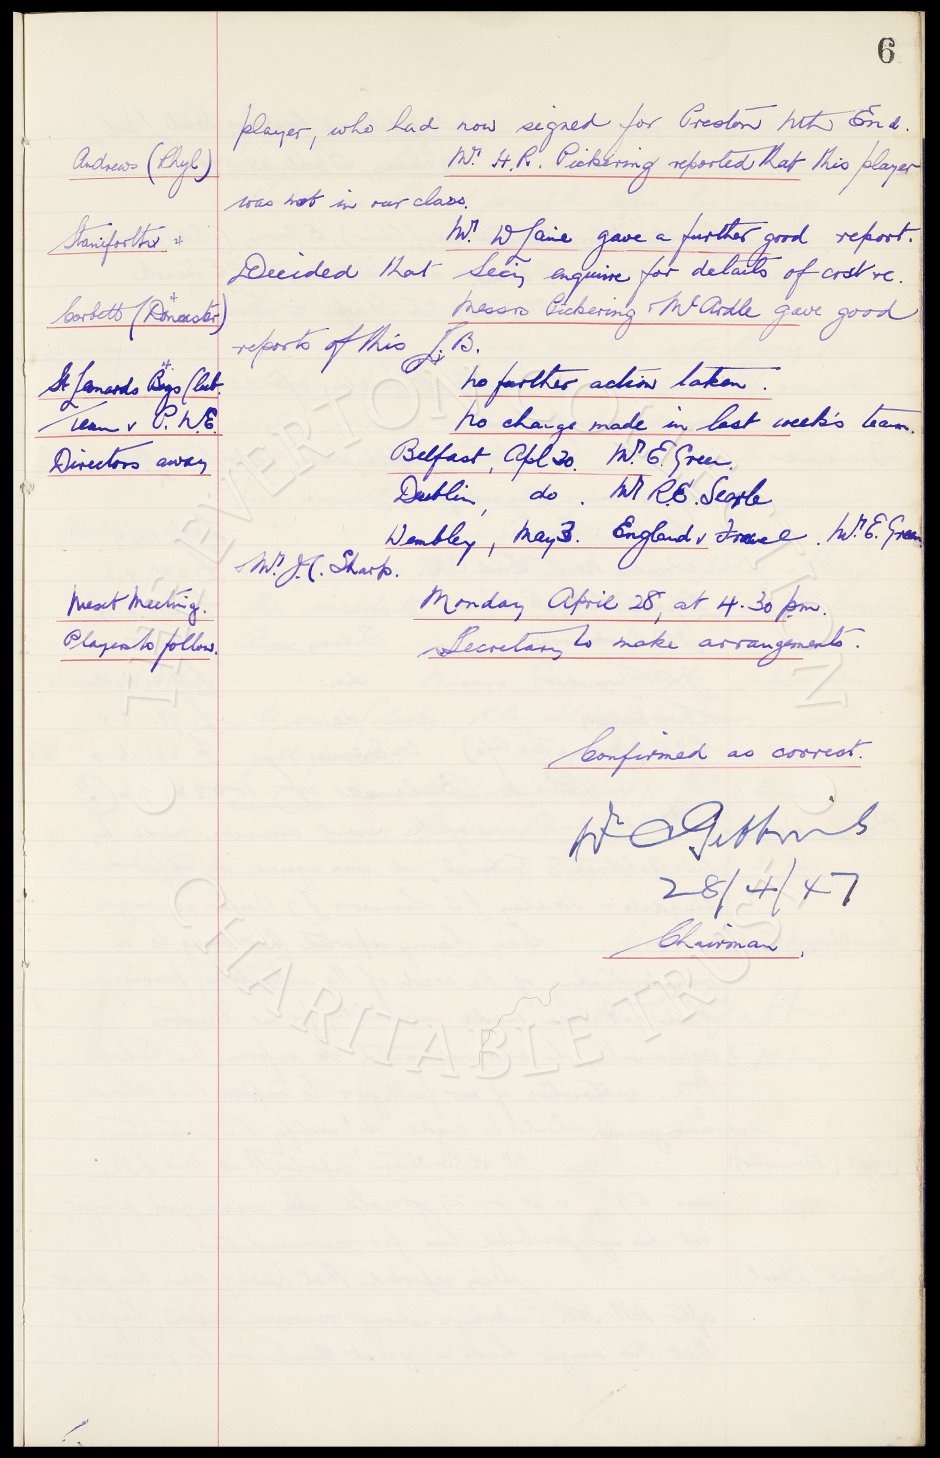 6
player, who had now signed for Preston Nth End.
Andrews (Rhyl) Mr. H.R. Pickering reported that this player
was not in our class.
Staniforth Mr. W Jaine gave a further good report.
Decided that Secy enquire for details of cost re.
Corbett (Doncaster) Messrs Pickering & McArdle gave good
reports of this L.B.
St Leonards Boys Club. No further action taken.
Team v P.N.E. No change made in last week's team.
Directors away Belfast, Apl 30. Mr. E. Green.
Dublin, do. Mr R.E. Searle
Wembley, May 3. England v France. Mr. E. Green
& Mr. J.C. Sharp.
Next Meeting. Monday April 28, at 4.30 pm.
Players to follow. Secretary to make arrangements.
Confirmed as correct.
Wm C Gibbins
28/4/47
Chairman,
THE EVERTON COLLECTION
CHARITABLE TRUST